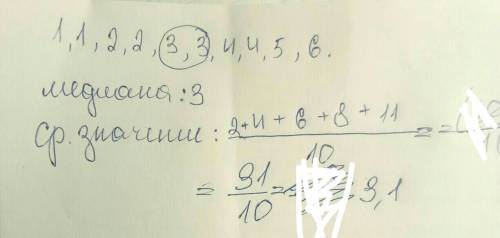 1, 1, 2, 2, 3, 3, 4, 4, 5, 6.
медиана: 3
ср. значение: 2+4+6+8+11 / 10 =
= 31/10 = 3,1